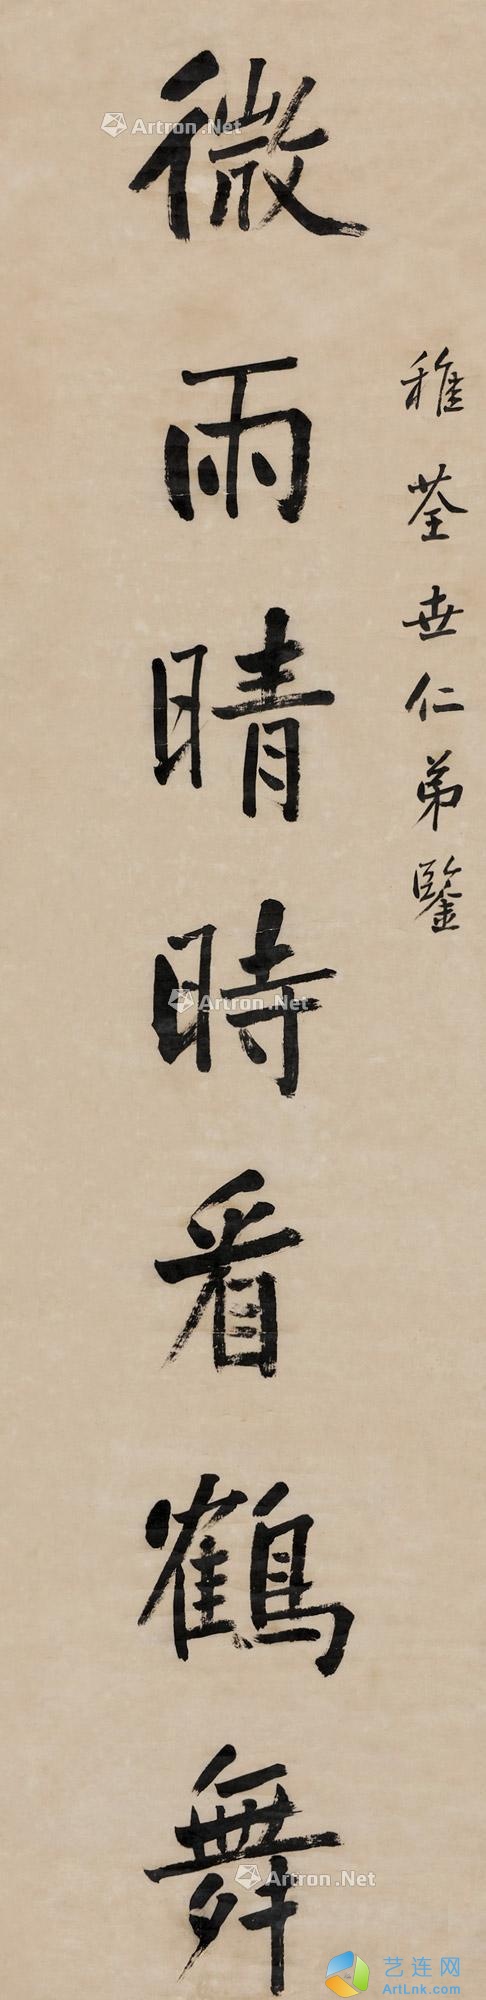 稚荃世仁弟鑒
微雨晴時看鶴舞
Artron.Net
Artron.Net
Artron.Net
艺连网
ArtLnk.com